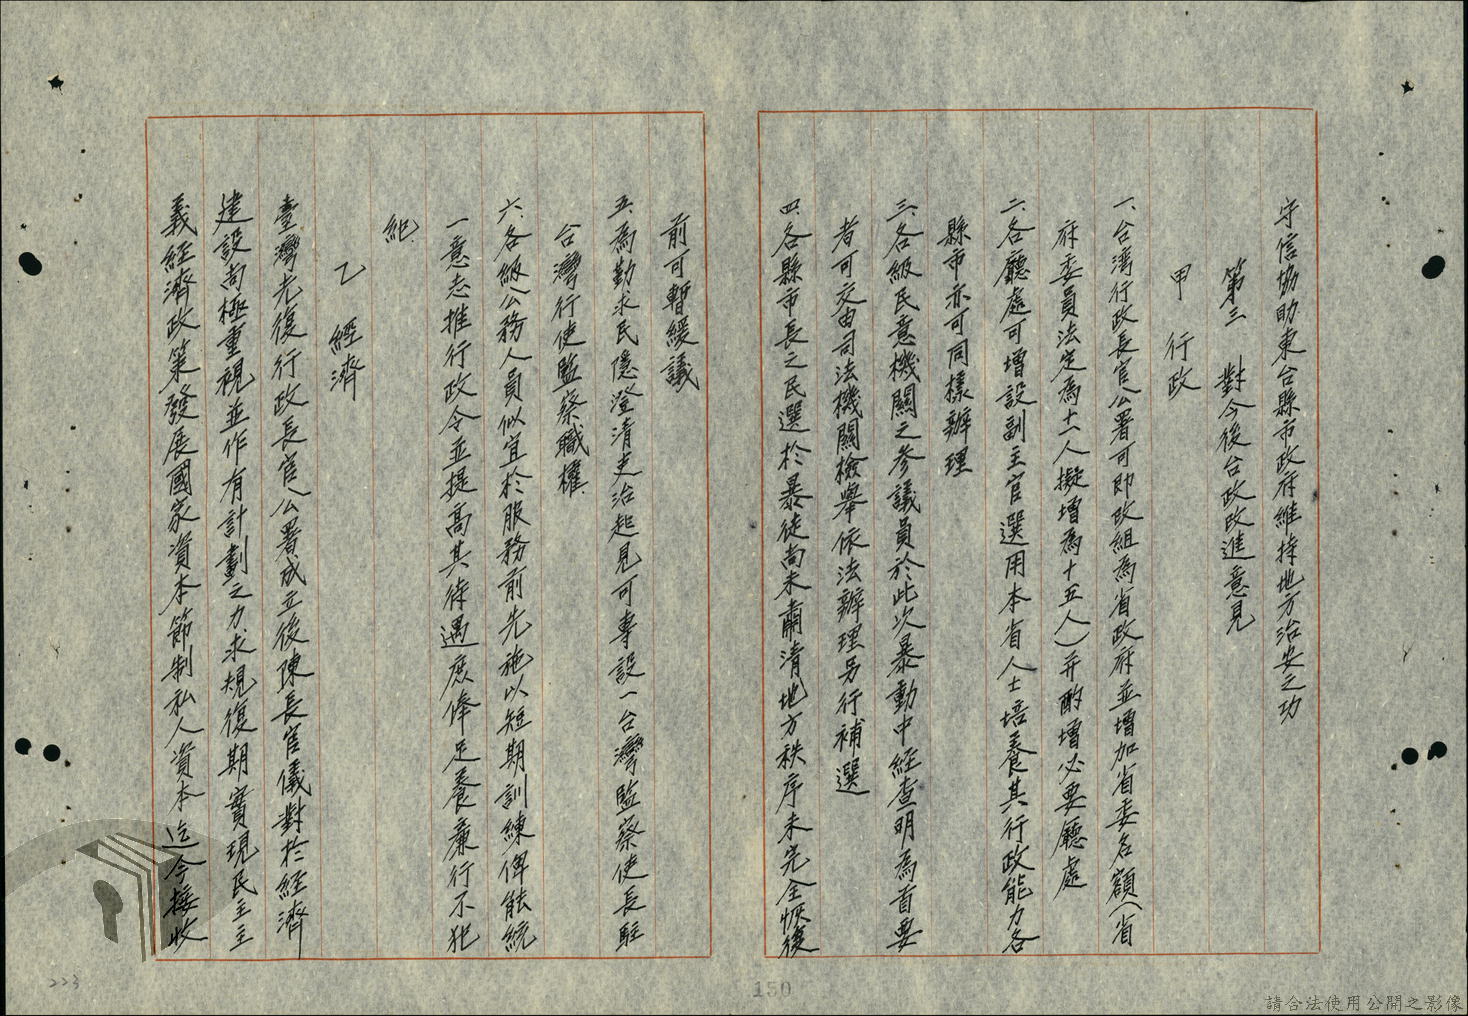 守信協助東台縣市政府維持地方治安之功
第三　對今後台政改進意見
甲　行政
一、台湾行政長官公署可即改組為省政府並增加省委名額（省
府委員法定為十一人擬增為十五人）并酌增必要廳處
二、各廳處可增設副主官選用本省人士培養其行政能力各
縣市亦可同樣辦理
三、各級民意機關之參議員於此次暴動中經查明為首要
者可交由司法機關檢舉依法辦理另行補選
四、各縣市長之民選於暴徒尚未肅清地方秩序未完全恢復
前可暫緩議
五、為勤求民隱澄清吏治起見可專設一台灣監察使長駐
台灣行使監察職權
六、各級公務人員似宜於服務前先施以短期訓練俾能統
一意志推行政令並提高其待遇庶俸足養廉行不犯
紀
乙　經濟
臺灣光復行政長官公署成立後陳長官儀對於經濟
建設尚極重視並作有計劃之力求規復期實現民主主
義經濟政策發展國家資本節制私人資本迄今接收
150
223
請合法使用公開之影像